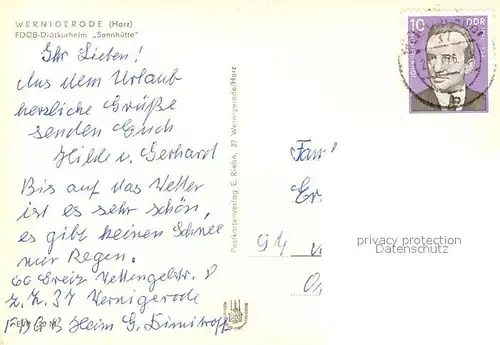 WERNIGERODE (Harz)
FDGB-Diätkurheim „Sennhütte"
Ihr Lieben!
Aus dem Urlaub
herzliche Grüße
senden Euch
Hilde u. Gerhard
Bis auf das Wetter
ist es sehr schön,
es gibt keinen Schnee
nur Regen.
Greiz
z. Z. 37 Wernigerode
Heim G. Dimitroff
Postkartenverlag E. Riehn, 37 Wernigerode/Harz
10 DDR
Fam
Er
privacy protection
Datenschutz